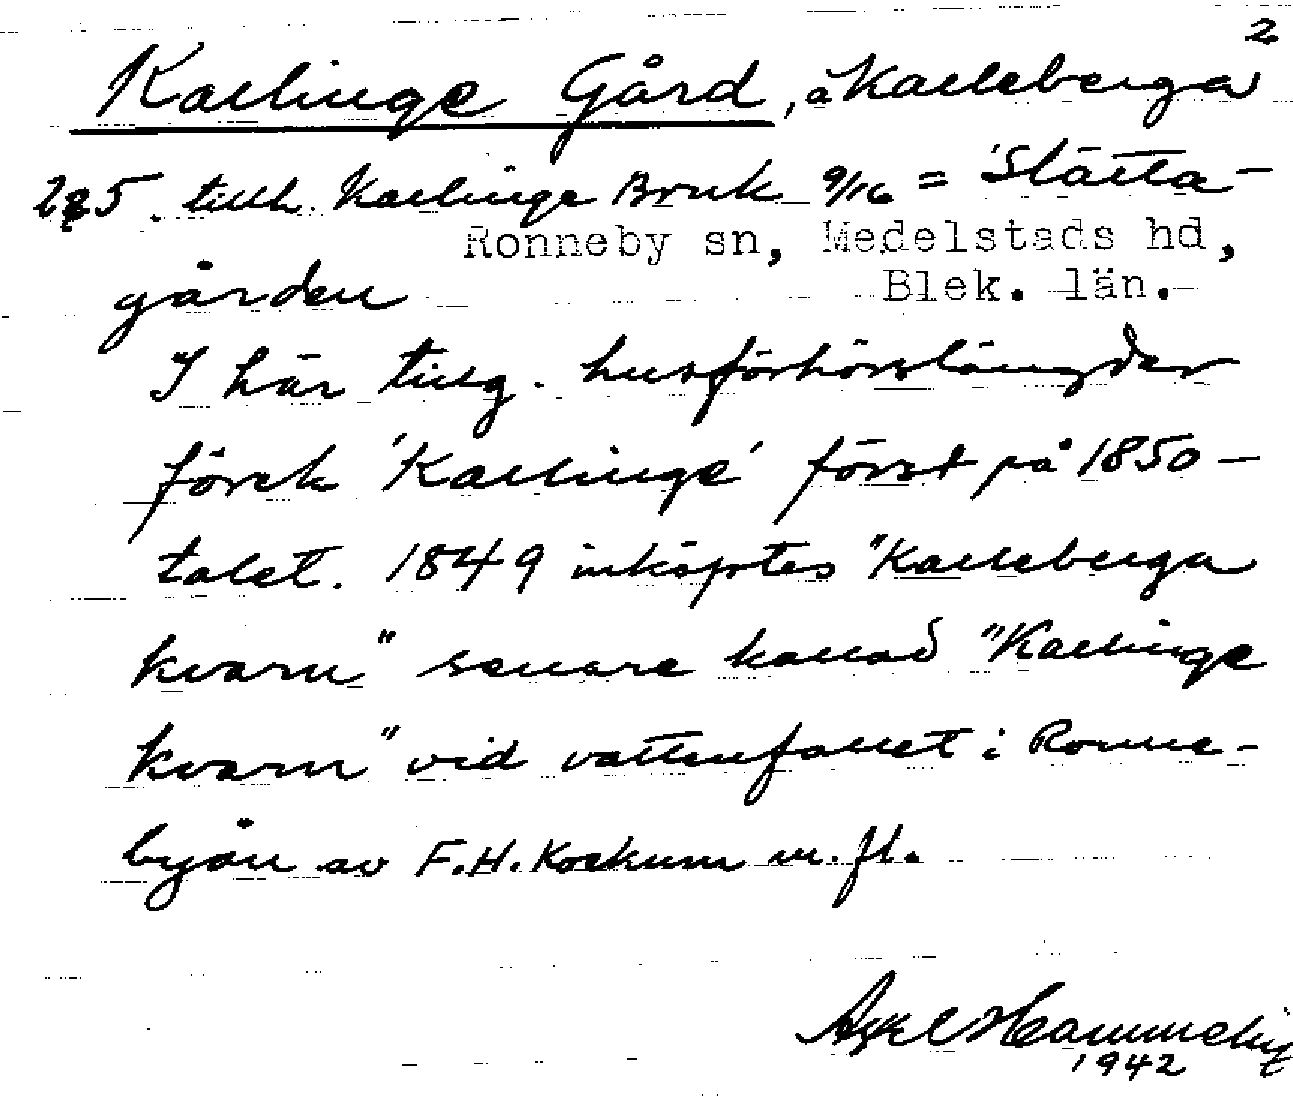 2
Kallinge Gård, å Kalleberga
2q5. tillh. Kallinge Bruk 9/16 = 'Slätta-
Ronneby sn, Medelstads hd,
gården Blek. län.
I här tillg. husförhörslängder
förek 'Kallinge' först på 1850-
talet. 1849 inköptes "Kalleberga
kvarn" senare kallad "Kallinge
kvarn" vid vattenfallet i Ronne-
byån av F.H. Kockum m.fl.
Axel
1942